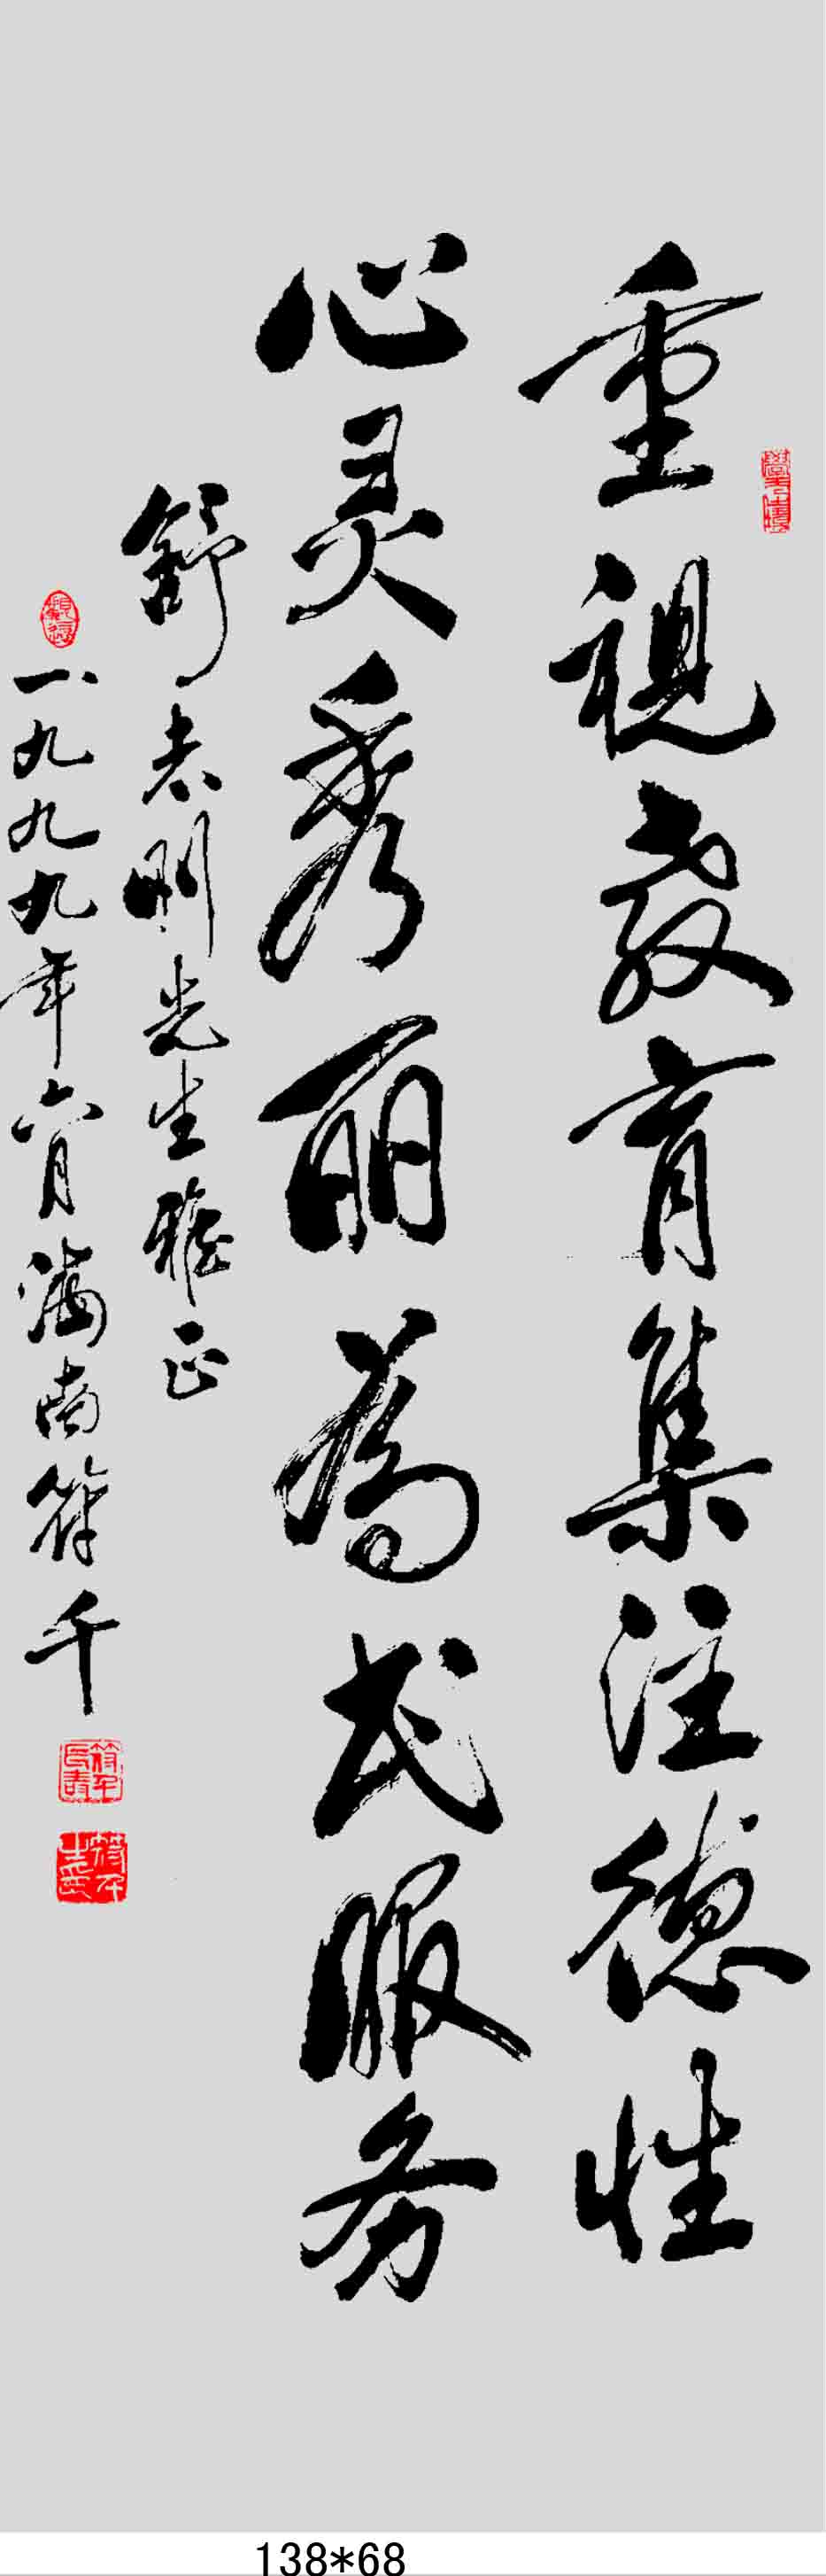 重視教育集注德性
心灵秀丽為民服务
舒志明先生雅正
一九九九年六月海南符千
138*68